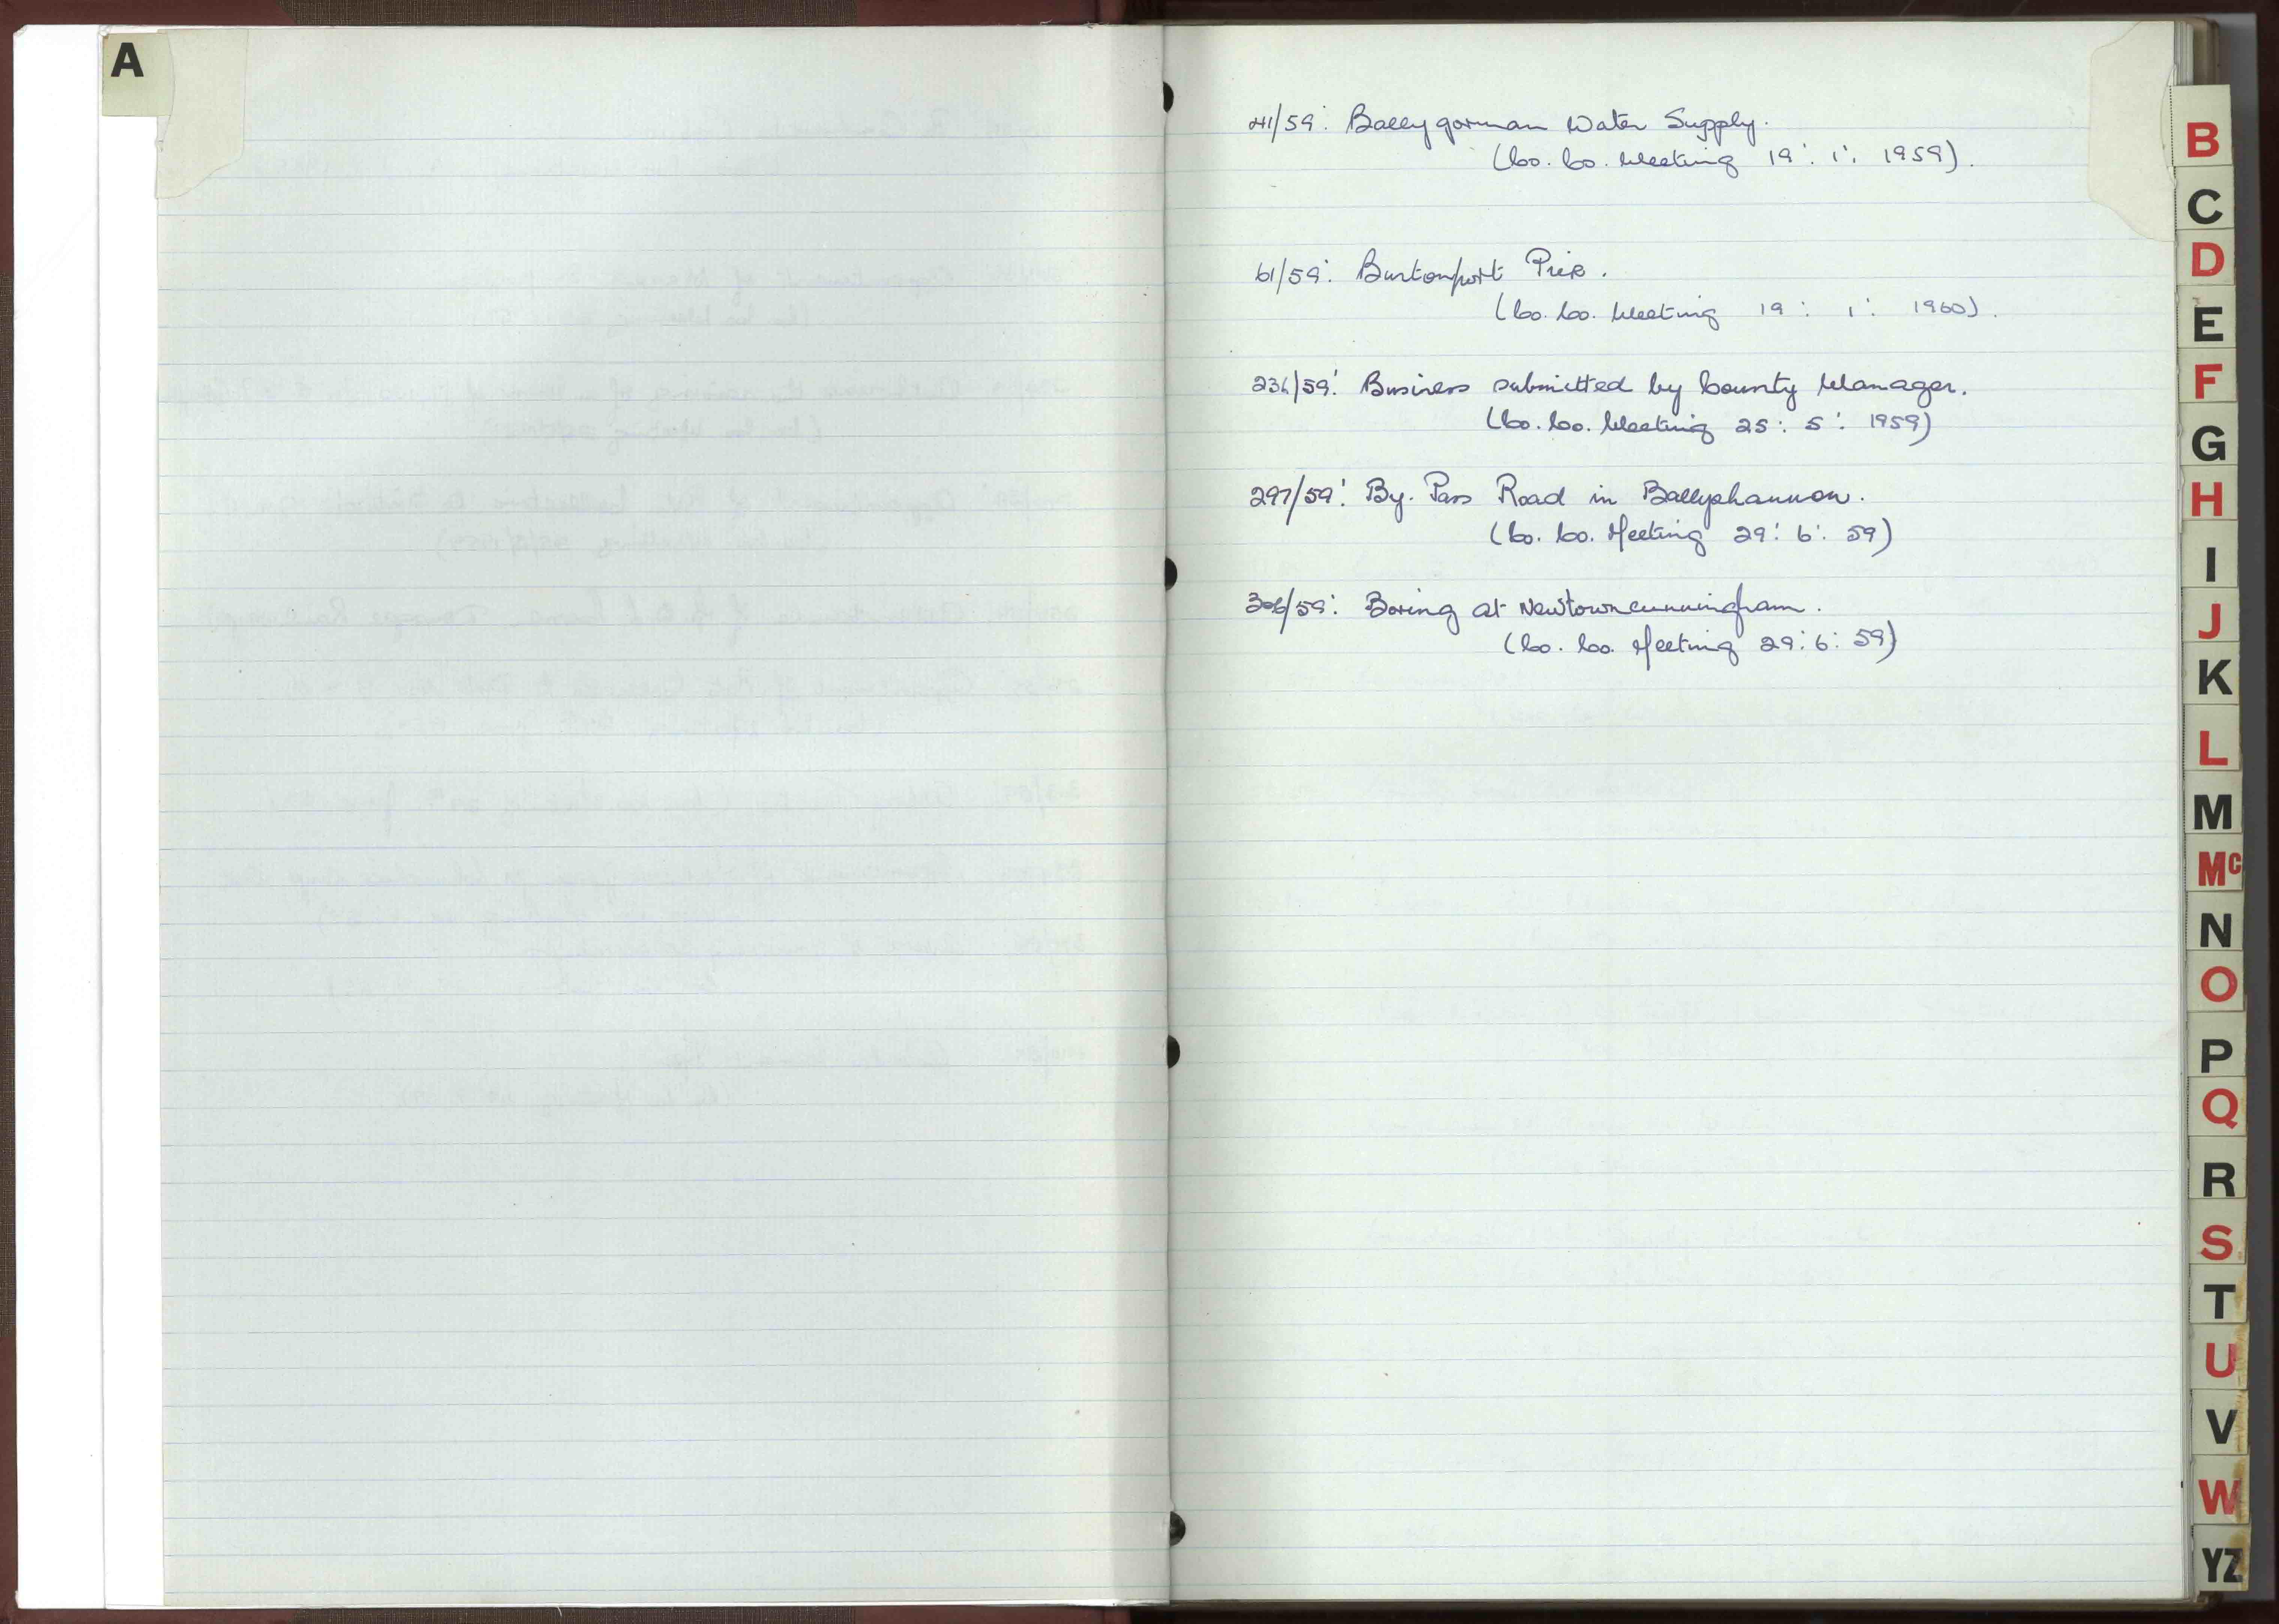 A
41/59: Ballygorman Water Supply.
(Co. Co. Meeting 19: 1: 1959).
61/59: Burtonport Pier.
(Co. Co. Meeting 19: 1: 1960).
236/59: Business submitted by County Manager.
(Co. Co. Meeting 25: 5: 1959)
297/59: By. Pass Road in Ballyshannon.
(Co. Co. Meeting 29: 6: 59)
306/59: Boring at Newtowncunningham.
(Co. Co. Meeting 29: 6: 59)
B
C
D
E
F
G
H
I
J
K
L
M
Mc
N
O
P
Q
R
S
T
U
V
W
YZ